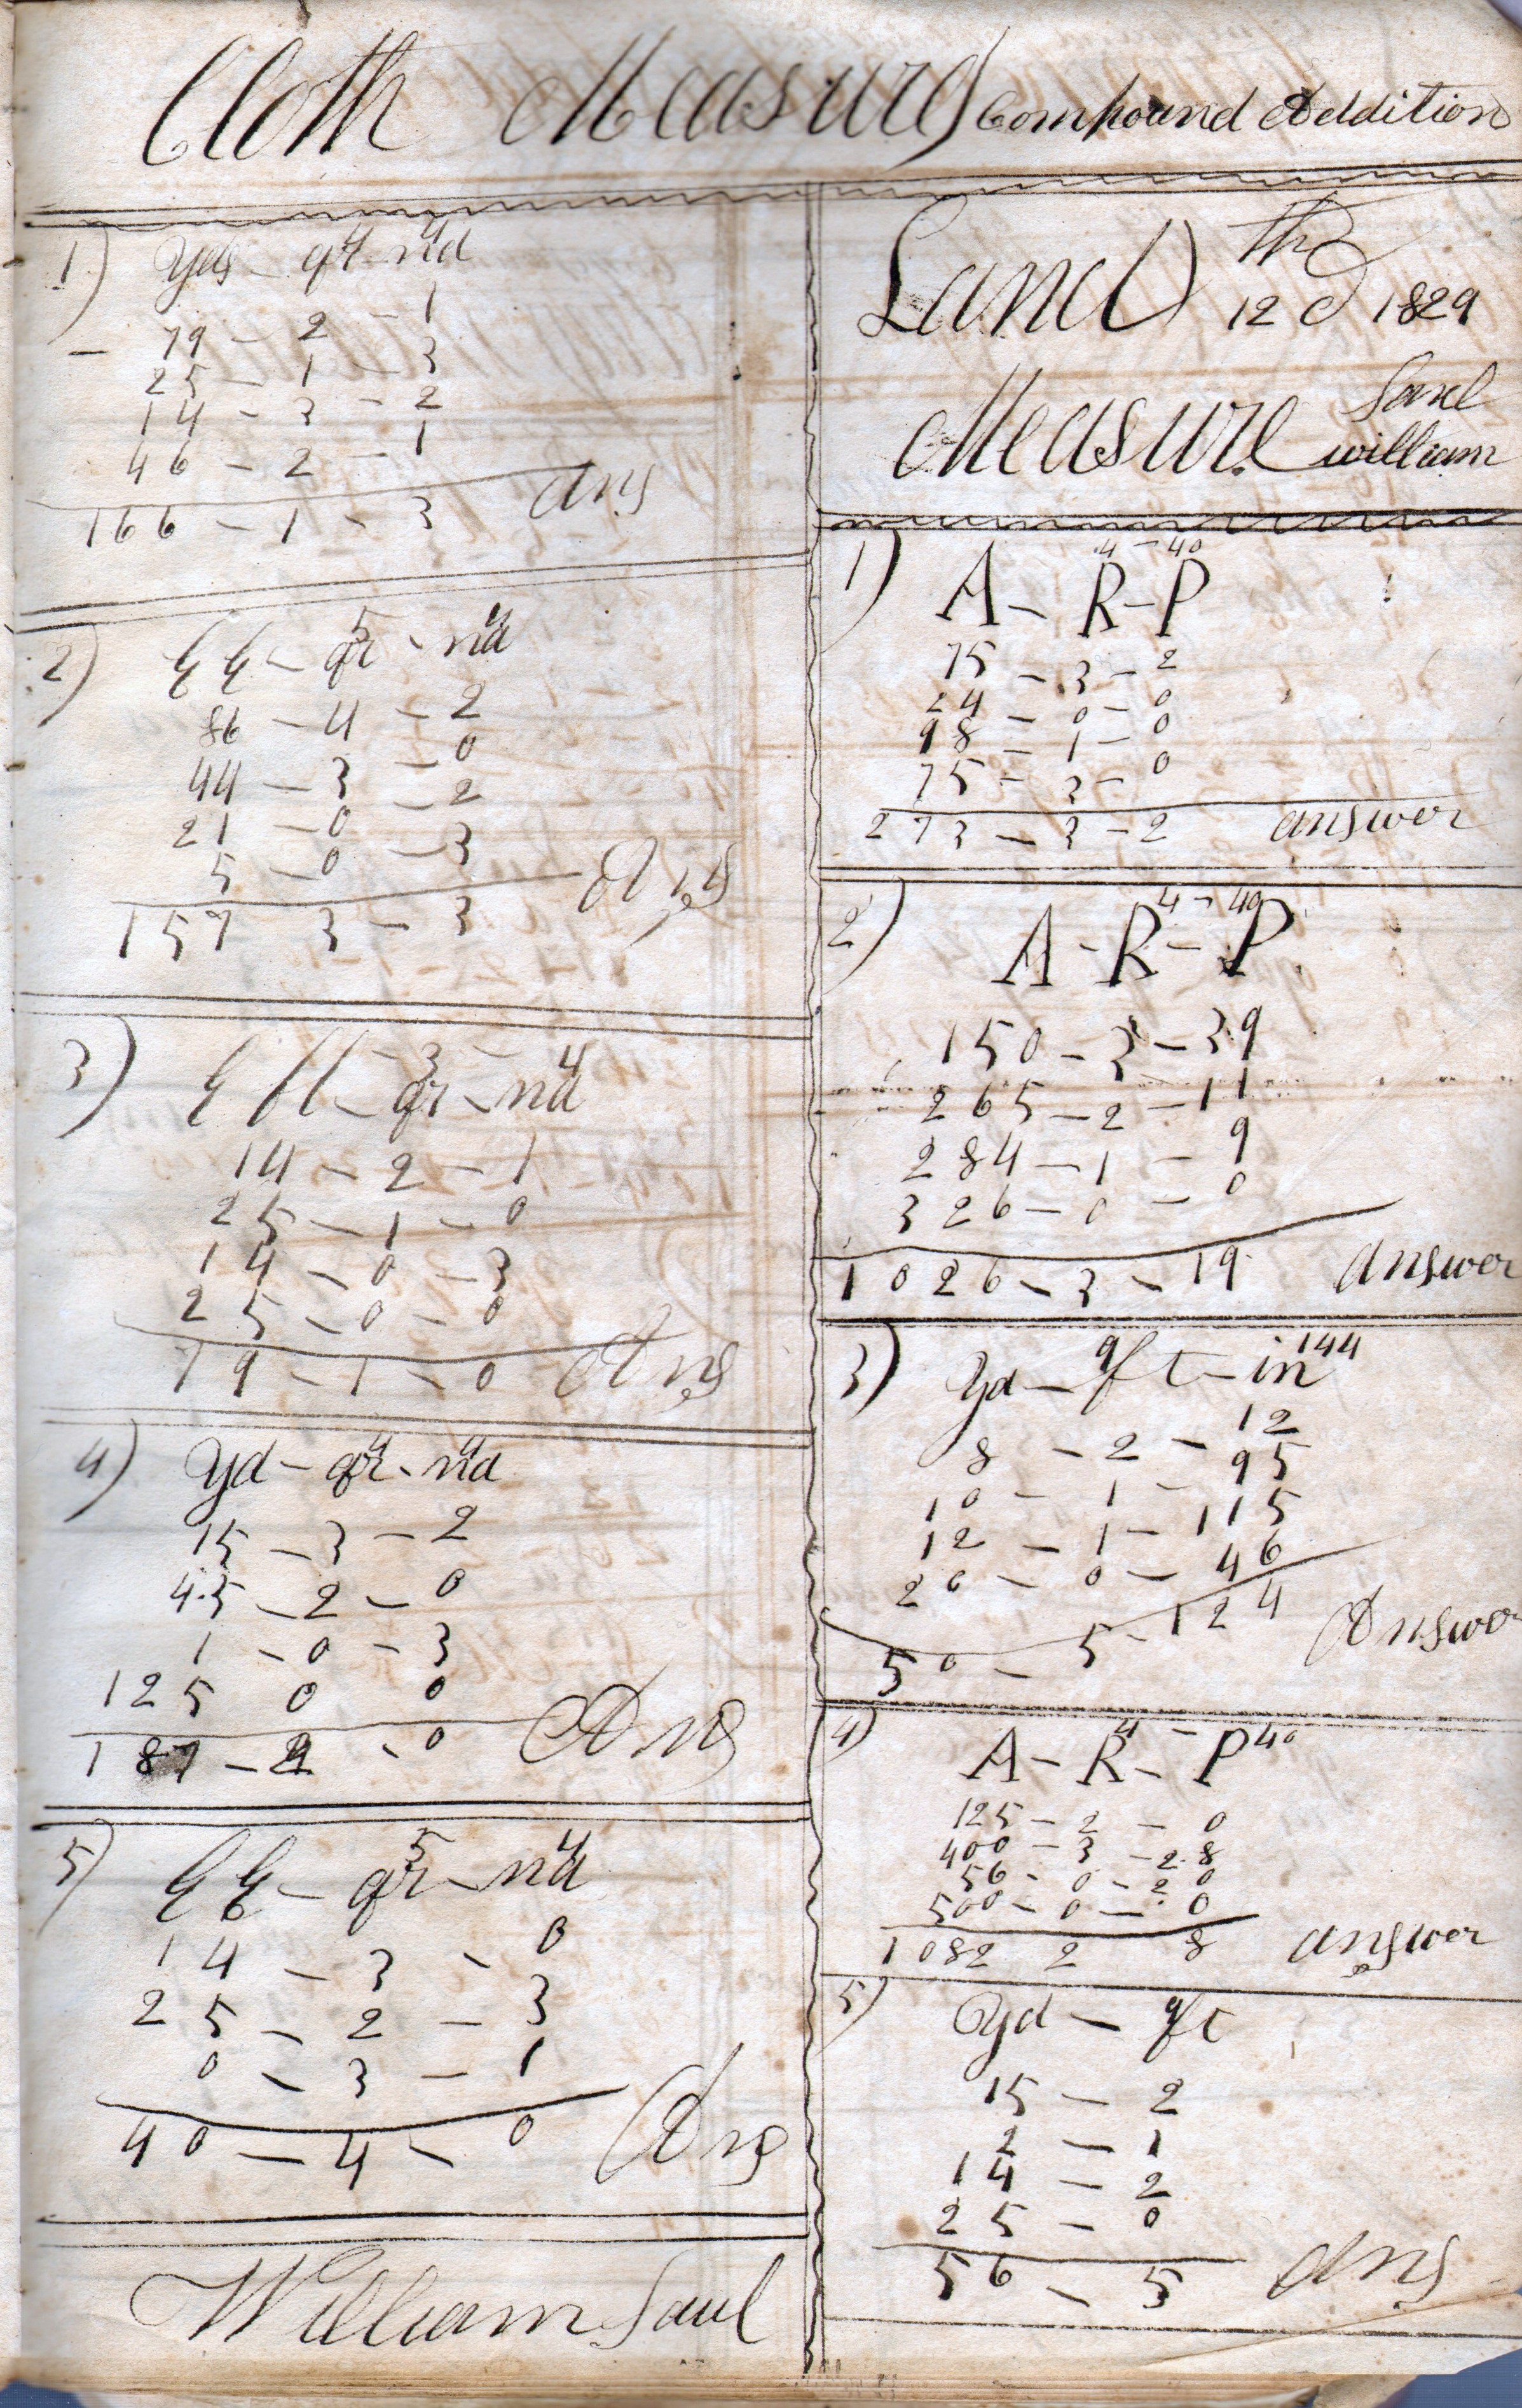 Cloth Measure Compound Addition
1) Yds - qr4 - na4
79 - 2 - 1
25 - 1 - 3
14 - 3 - 2
46 - 2 - 1
166 - 1 - 3 ans
2) EE - qr5 - na4
86 - 4 - 2
44 - 3 - 0
21 - 0 - 2
5 - 0 - 3
157 3 - 3 Ans
3) E fl - qr3 - na4
14 - 2 - 1
25 - 1 - 0
14 - 0 - 3
25 - 0 - 0
79 - 1 - 0 Ans
4) Yd - qr4 - na4
15 - 3 - 2
45 - 2 - 0
1 - 0 - 3
125 0 0
187 - 2 - 0 Ans
5) EE - qr5 - na4
14 - 3 - 0
25 - 2 - 3
0 - 3 - 1
40 - 4 - 0 Ans
William Saul
Land 12th d 1829
Measure Saul
william
1) A - R4 - P40
75 - 3 - 2
24 - 0 - 0
98 - 1 - 0
75 - 3 - 0
273 - 3 - 2 answer
2) A - R4 - P40
150 - 3 - 39
265 - 2 - 11
284 - 1 - 9
326 - 0 - 0
1026 - 3 - 19 answer
3) Yd - 9ft - in144
8 - 2 - 12
10 - 1 - 95
12 - 1 - 115
20 - 0 - 46
50 - 5 - 124 Answer
4) A - R4 - P40
125 - 2 - 0
400 - 3 - 28
56 - 0 - 20
500 - 0 - 0
1082 2 8 answer
5) Yd - 9ft
15 - 2
2 - 1
14 - 2
25 - 0
56 - 5 ans